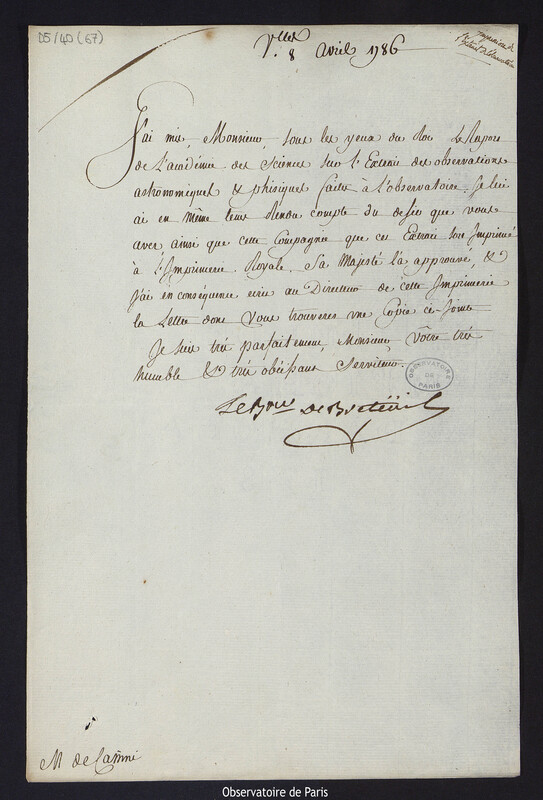 D5/40 (67)
V.lles 8 avril 1786
impression de
l'extrait d'observation
J'ai mis, Monsieur, sous les yeux du Roi le Raport
de l'académie des Sciences sur l'Extrait des observations
astronomiques & phisiques faites a l'observatoire. Je lui
ai en même tems Rendu compte du desir que vous
avez ainsi que cette Compagnie que cet Extrait soit Imprimé
à l'Imprimerie Royale. Sa Majesté l'a approuvé, &
J'ai en conséquence ecrit au Directeur de cette Imprimerie
la Lettre dont Vous trouverez une Copie ci-jointe
Je suis très parfaitement, Monsieur, Votre très
humble & très obéissant Serviteur.
OBSERVATOIRE
DE
PARIS
Le Bon De Breteüil
M de Cassini
Observatoire de Paris